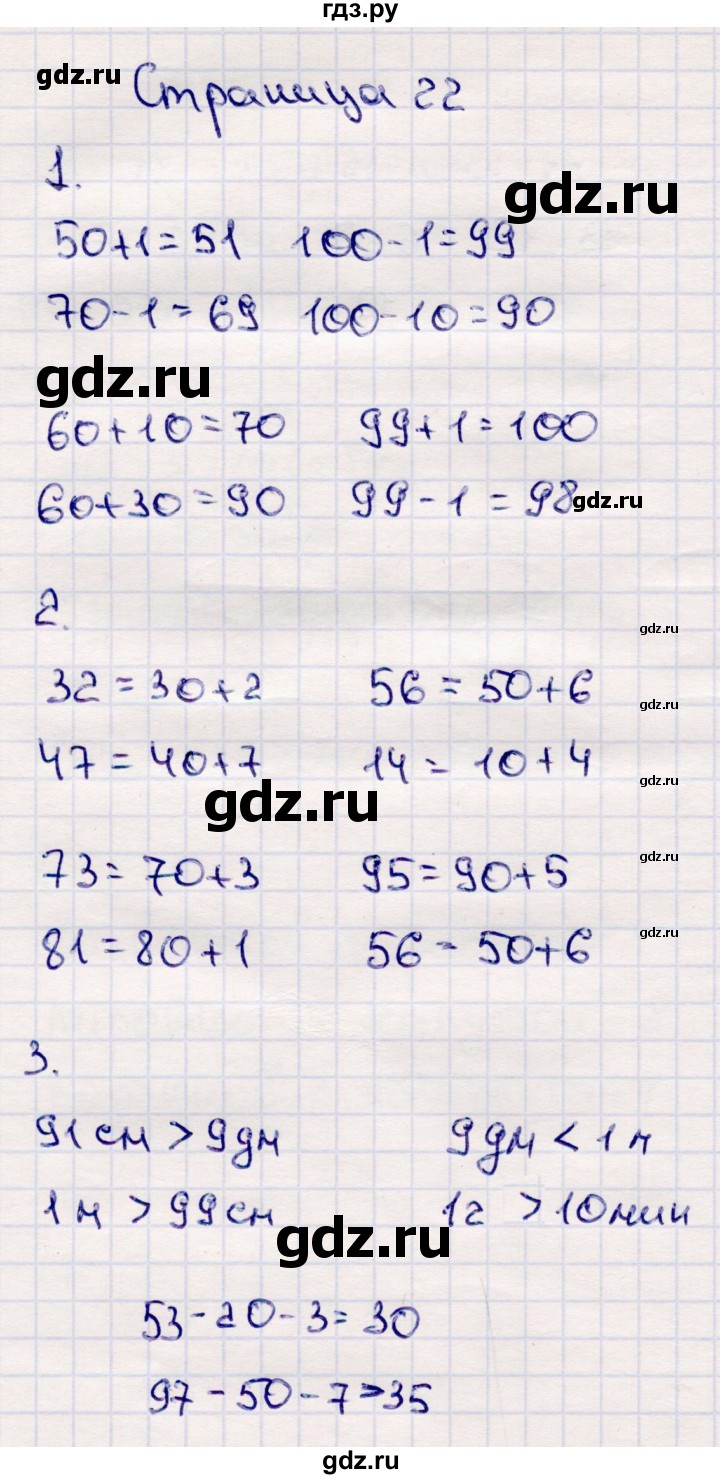 гдз.ру
gdz.ru
Страница 22
1.
gdz.ru
50+1=51 100-1=99
70-1=69 100-10=90
gdz.ru
60+10=70 99+1=100
60+30=90 99-1=98
gdz.ru
2.
gdz.ru
32=30+2 56=50+6
gdz.ru
47=40+7 14=10+4
gdz.ru
gdz.ru
73=70+3 95=90+5
gdz.ru
81=80+1 56=50+6
gdz.ru
3.
91см>9дм 9дм<1м
1м>99см 1г>10мин
gdz.ru
53-20-3=30
97-50-7>35
gdz.ru